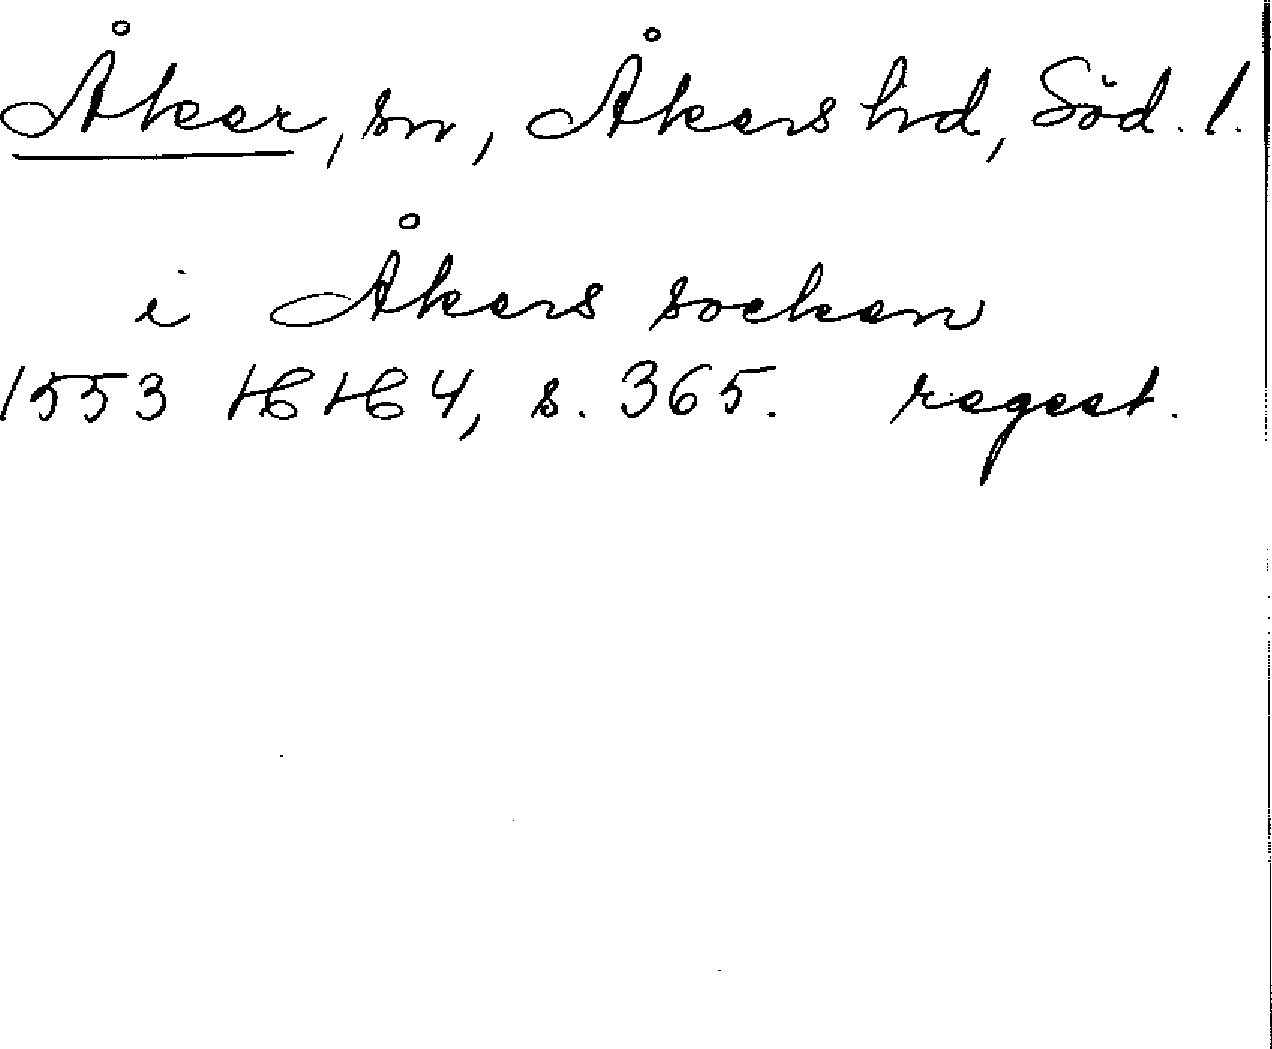 Åker, sn, Åkers hd, Söd. l.
i Åkers socken
1553 HH 4, s. 365. regest.